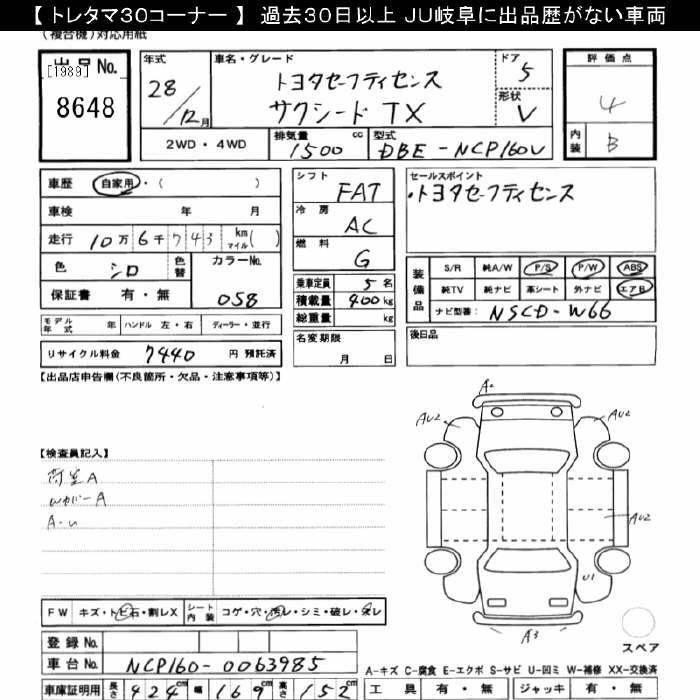 【 トレタマ30コーナー 】 過去30日以上 JU岐阜に出品歴がない車両
(複合機)対応用紙
出品No.
[1989]
8648
年式
28/12月
車名・グレード
トヨタセーフティセンス
サクシード TX
ドア
5
形状
V
評価点
4
内装
B
2WD・4WD
排気量
1500 cc
型式
DBE-NCP160V
車歴 自家用・( )
車検 年 月
走行 10万6千743 km マイル( )
色 シロ 色替 カラーNo.
保証書 有・無 058
モデル年式 年 ハンドル 左・右 ディーラー・並行
リサイクル料金 7440 円 預託済
シフト
FAT
冷房
AC
燃料
G
乗車定員 5 名
積載量 400 kg
総重量 kg
名変期限
月 日
セールスポイント
・トヨタセーフティセンス
装備品
S/R 純A/W P/S P/W ABS
純TV 純ナビ 革シート 外ナビ エアB
ナビ型番: NSCD-W66
後日品
【出品店申告欄(不良箇所・欠品・注意事項等)】
【検査員記入】
荷室A
Wカバー A
A・U
A2
AU2
AU2
AU2
U1
A3
スペア
FW キズ・トビ石・割レX シート内装 コゲ・穴・汚レ・シミ・破レ・スレ
登録No.
車台No. NCP160-0063985
車庫証明用 長さ 424cm 幅 169cm 高さ 152cm
A-キズ C-腐食 E-エクボ S-サビ U-凹ミ W-補修 XX-交換済
工具 有・無 ジャッキ 有・無